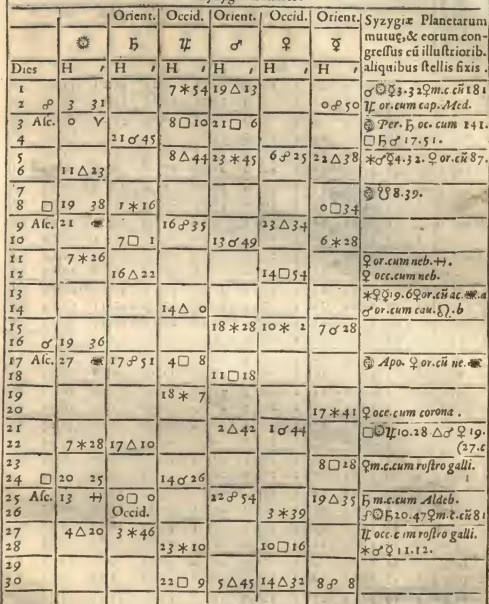 Orient. Occid. Orient. Occid. Orient. Syzygiæ Planetarum
☉ ♄ ♃ ♂ ♀ ☿ mutuę, & eorum con-
gressus cū illustriorib.
Dies H ′ H ′ H ′ H ′ H ′ H ′ aliquibus stellis fixis.
1 7 ⚹ 54 19 △ 13 ☌ ☉ ☿ 3.32 ♀ m.c cū 181
2 ☍ 3 31 0 ☍ 50 ♃ or. cum cap. Med.
3 Asc. 0 ♈ 8 □ 10 21 □ 6 Per. ♄ oc. cum 141.
4 21 ☌ 45 □ ♄ ♂ 17.51.
5 8 △ 44 23 ⚹ 45 6 ☍ 25 22 △ 38 ⚹ ♂ ☿ 4.32. ♀ or. cū 87.
6 11 △ 23
7 ☋ 8.39.
8 □ 19 38 1 ⚹ 16 0 □ 34
9 Asc. 21 ♒ 16 ☍ 35 23 △ 34
10 7 □ 1 13 ☌ 49 6 ⚹ 28
11 7 ⚹ 26 ♀ or. cum neb. ♓.
12 16 △ 22 14 □ 54 ♀ occ. cum neb.
13 ⚹ ♀ ☿ 19.6 ♀ or. cū ac. ♒. a
14 14 △ 0 ♂ or. cum cau. ♌. b
15 18 ⚹ 28 10 ⚹ 2 7 ☌ 28
16 ☌ 19 36
17 Asc. 27 ♒ 17 ☍ 51 4 □ 8 Apo. ♀ or. cū ne. ♒
18 11 □ 18
19 18 ⚹ 7
20 17 ⚹ 41 ♀ occ. cum corona.
21 2 △ 42 1 ☌ 44 □ ☉ ♃ 10.28. △ ♂ ♀ 19.
22 7 ⚹ 28 17 △ 10 (27.c
23 8 □ 28 ♀ m.c. cum rostro galli.
24 □ 20 25 14 ☌ 26
25 Asc. 13 ♓ 0 □ 0 22 ☍ 54 19 △ 35 ♄ m.c. cum Aldeb.
26 Occid. 3 ⚹ 39 ☍ ☉ ♄ 20.47 ♀ m.c. cū 81
27 4 △ 20 3 ⚹ 46 ♃ occ. c im rostro galli.
28 23 ⚹ 10 10 □ 16 ⚹ ♂ ☿ 11.12.
29
30 22 □ 9 5 △ 45 14 △ 32 8 ☍ 8